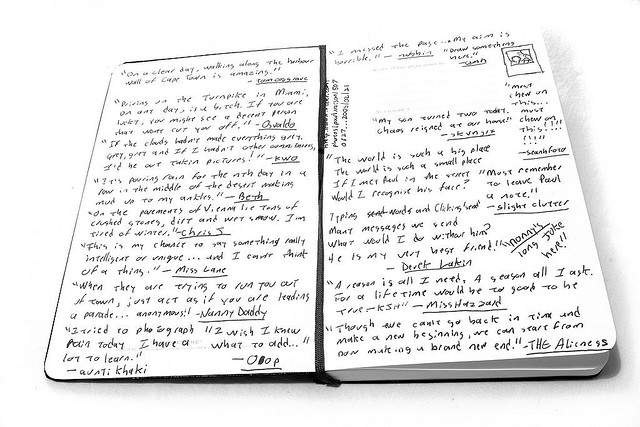 "On a clear day, walking along the harbour
wall of Cape Town is amazing."
"Driving on the Turnpike in Miami,
on any day, is a bitch. If you are
lucky, you might see a decent person
that wont cut you off." - Osvaldo
"If the clouds hadn't made everything grey,
grey, grey and if I hadn't other commitments,
I'd be out takin pictures!" - KWO
"It's pouring rain for the nth day in a
row in the middle of the desert making
mud up to my ankles." - Beth
"On the pavements of Vienna lie tons of
crushed stones, dirt and wet snow. I'm
tired of winter." - Chris J
"This is my chance to say something really
intelligent or unique... and I can't think
of a thing." - Miss Lane
"When they are trying to run you out
of town, just act as if you are leading
a parade... anonymous" - Nanny Daddy
"I tried to photograph
Rain today I have a
lot to learn."
- aunti khaki
"I wish I knew
what to add..."
- Ooop
"I missed the page... my aim is
horrible."
"Draw something
here."
"My son turned two today.
chaos reigned at our house!"
- skungis
"must
chew on
this...
must
chew on
this...!!!
!!!!"
- seanhfoto
"The world is such a big place
The world is such a small place
If I met Paul in the street
Would I recognise his face?
"Must remember
to leave Paul
a note."
- slight clutter
Typing words and clicking send
Many messages we send
What would I do without him
He is my very best friend!"
- Derek Lakin
"nanny's
long joke
here!!
"A reason is all I need, A season all I ask.
For a life time would be to good to be
true - KSH" - Miss Hazzard
"Though we can't go back in time and
make a new beginning, we can start from
now making a brand new end." - THE Aliness